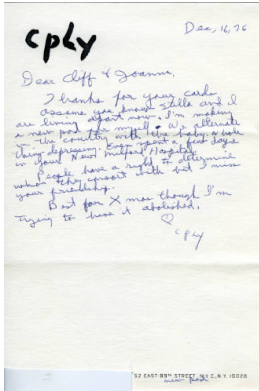 cpLy
Dec, 16, 76
Dear Cliff & Joanne,
Thanks for your card.
assume you know Stella and I
are living apart now. I'm making
a new pad for myself. We alternate
in the country with the baby. A whole
thing depressing. Even spent a few days
in your New Milford Hospital.
People have a right to determine
whom they consort with but I miss
your friendship.
Best for X mas though I'm
trying to have it abolished.
♡
cply
52 EAST 89TH STREET, N.Y.C., N.Y. 10028
new pad